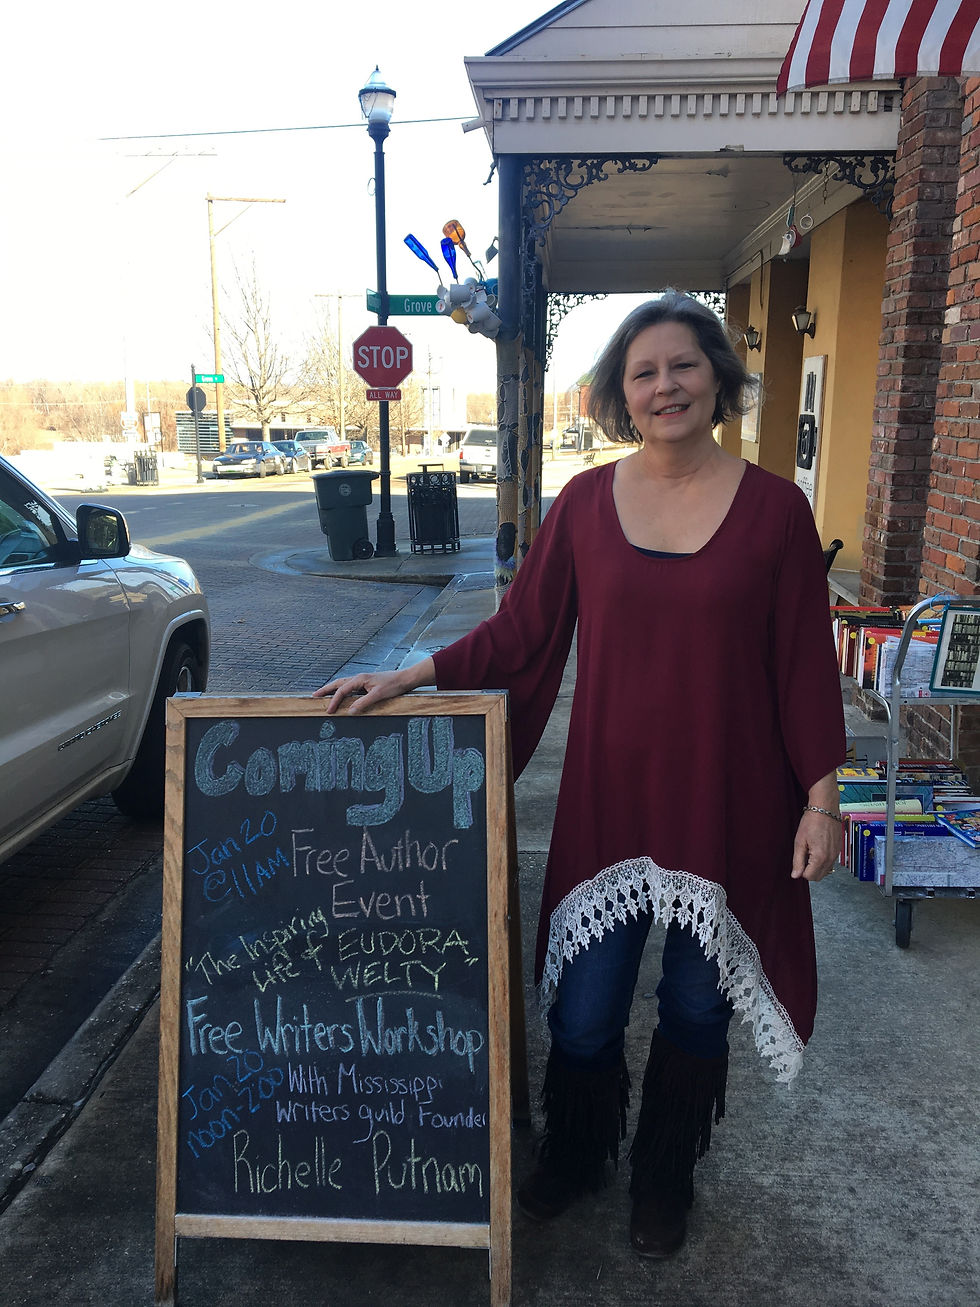 Grove
STOP
ALL WAY
coffee
Coming Up
Jan 20
@11AM
Free Author
Event
"The Inspiring
Life of EUDORA
WELTY"
Free Writers Workshop
Jan 20
noon-2:00
With Mississippi
Writers guild Founder
Richelle Putnam